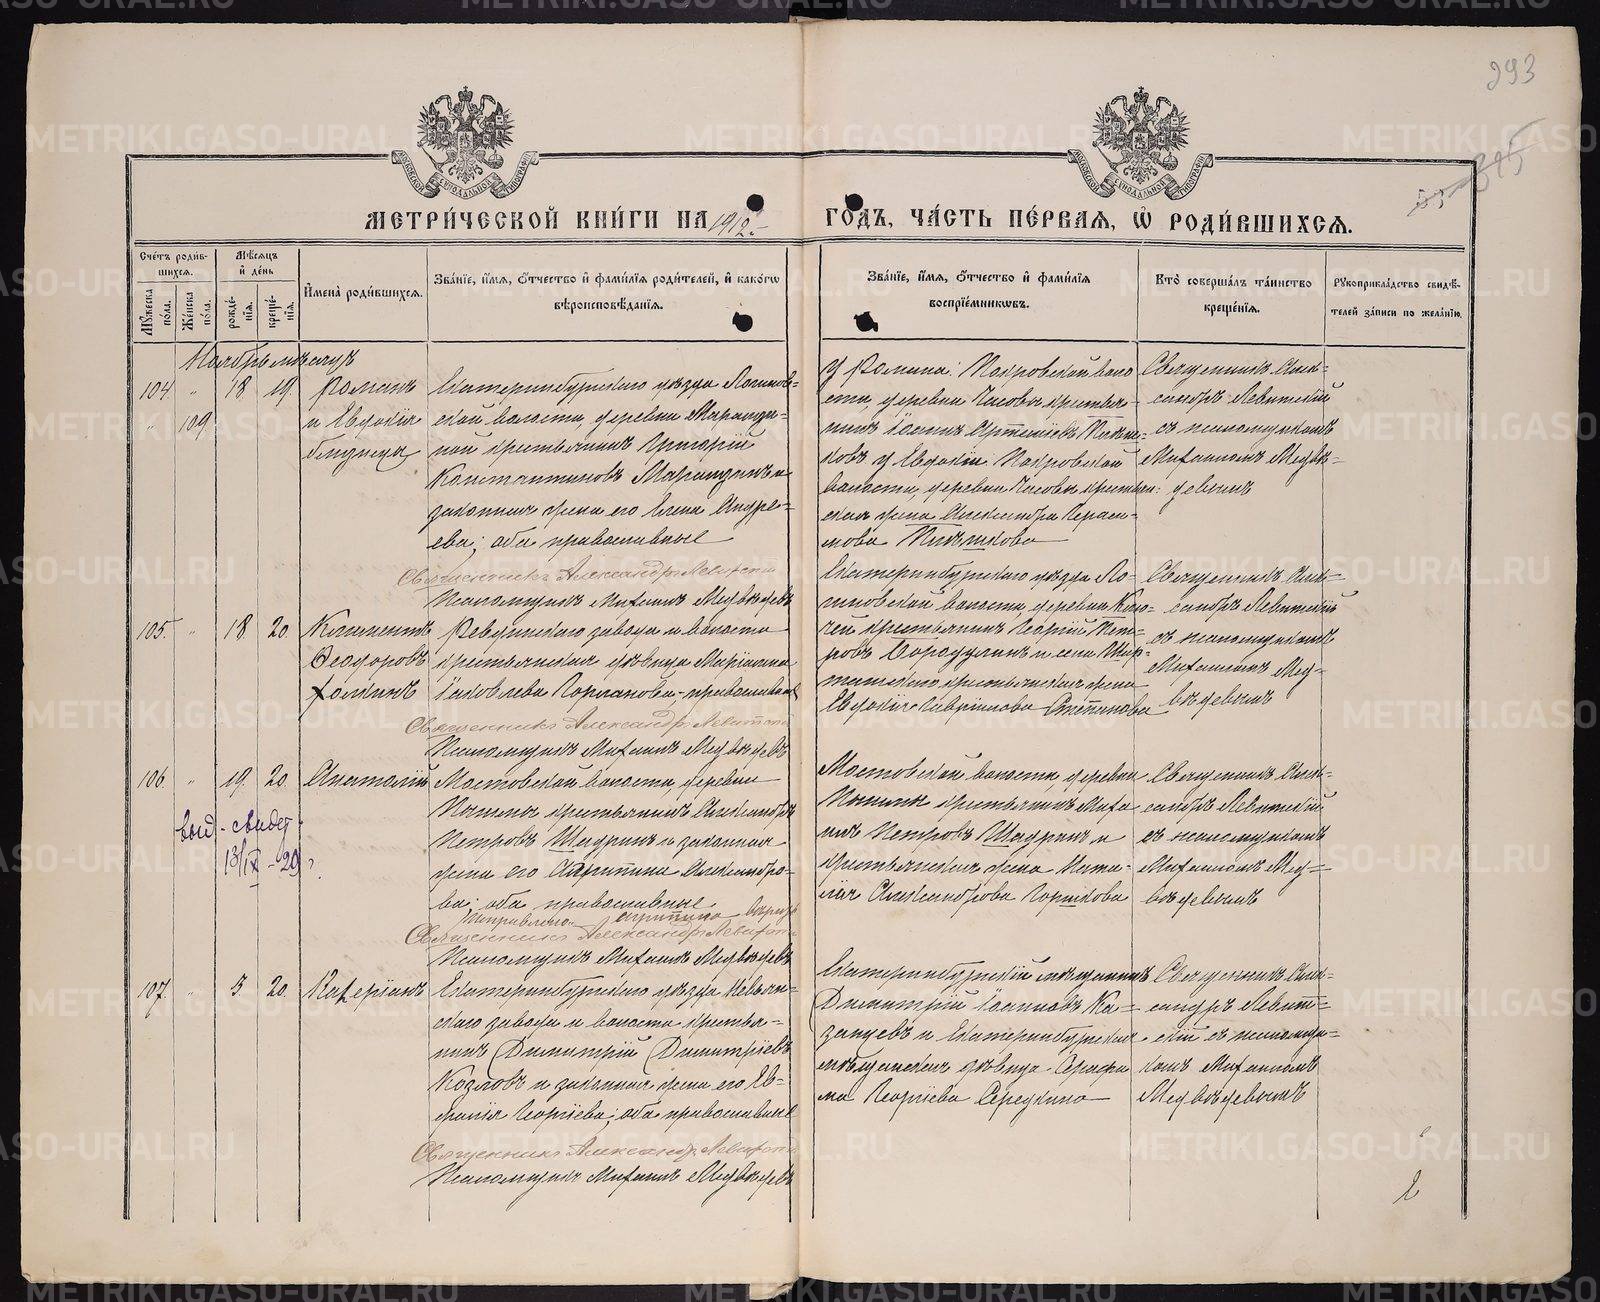 293
315
МЕТРИ́ЧЕСКОЙ КНИ́ГИ НА 1912 ГОДЪ, ЧА́СТЬ ПЕ́РВАЯ, Ѡ РОДИ́ВШИХСЯ.
Сче́тъ роди́в-
шихся.
Му́жеска по́ла.
Же́нска по́ла.
Мѣ́сяцъ
и де́нь
рожде́-
нія.
креще́-
нія.
Имена̀ роди́вшихся.
Зва́ніе, и́мя, о́тчество и фами́лія роди́телей, и како́гѡ
вѣроисповѣ́данія.
Зва́ніе, и́мя, о́тчество и фами́лія
воспріе́мникѡвъ.
Кто̀ соверша́лъ та́инство
креще́нія.
Рукоприкла́дство свидѣ́-
телей за́писи по жела́нію.
Ноябрь мѣсяцъ
104 " 18 19. Романъ
" 109 и Евдокія
близнецы
Екатеринбургскаго уѣзда Логинов-
ской волости, деревни
крестьянинъ Григорій
Константиновъ и
законная жена его Елена Андре-
ева; оба православные
Священникъ Александръ Левитскій
Псаломщикъ Михаилъ Медвѣдевъ
У Романа: Покровской воло
сти, деревни Часовы крестья-
нинъ Іоаннъ
у Евдокіи Покровской
волости, деревни Часовы крестьян-
ская жена Александра Гераси-
мова
Священникъ Алек-
сандръ Левитскій
съ псаломщикомъ
Михаиломъ Медвѣ-
девымъ
105. " 18 20. Климентъ
Ѳеодоровъ
Ревдинскаго завода и волости
крестьянская дѣвица Маріанна
Іаковлева Горланова, православная
Священникъ Александръ Левитскій
Псаломщикъ Михаилъ Медвѣдевъ
Екатеринбургскаго уѣзда Ло-
гиновской волости, деревни
крестьянинъ Георгій Пет-
ровъ Бородулинъ и села Шар-
ташскаго крестьянская жена
Евдокія Гавриилова Степанова
Священникъ Алек-
сандръ Левитскій
съ псаломщикомъ
Михаиломъ Мед-
вѣдевымъ
106. " 19. 20. Анатолій
выд. свидет
13/IX - 29 г.
Мостовской волости, деревни
крестьянинъ Александръ
Петровъ Шадринъ и законная
жена его Агриппина Александро-
ва; оба православные
Исправлено: Агриппина вѣрно
Священникъ Александръ Левитскій
Псаломщикъ Михаилъ Медвѣдевъ
Мостовской волости, деревни
крестьянинъ Миха-
илъ Петровъ Шадринъ и
крестьянская жена Ната-
лія Александрова Горшкова
Священникъ Алек-
сандръ Левитскій
съ псаломщикомъ
Михаиломъ Мед-
вѣдевымъ
107. " 3. 20. Валеріанъ
Екатеринбургскаго уѣзда Невьян-
скаго завода и волости крестья-
нинъ Димитрій Димитріевъ
Козловъ и законная жена его Ев-
фанія Георгіева; оба православные
Священникъ Александръ Левитскій
Псаломщикъ Михаилъ Медвѣдевъ
Екатеринбургскій мѣщанинъ
Димитрій Іоанновъ Ка-
занцевъ и Екатеринбургская
мѣщанская дѣвица Серафи
ма Георгіева Середкина
Священникъ Алек-
сандръ Левит-
скій съ псаломщи-
комъ Михаиломъ
Медвѣдевымъ
METRIKI.GASO-URAL.RU